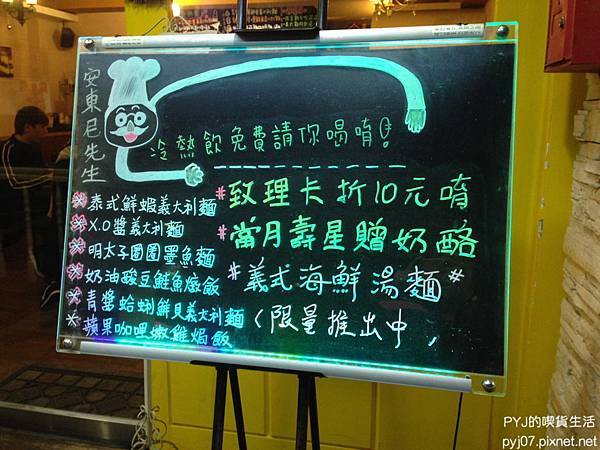 安東尼先生
冷熱飲免費請你喝唷!
#致理卡折10元唷
#當月壽星贈奶酪
#義式海鮮湯麵#
(限量推出中,
泰式鮮蝦義大利麵
X.O醬義大利麵
明太子圈圈墨魚麵
奶油酸豆鮭魚燉飯
青醬蛤蜊鮮貝義大利麵
蘋果咖哩嫩雞焗飯
PYJ的喫貨生活
pyj07.pixnet.net